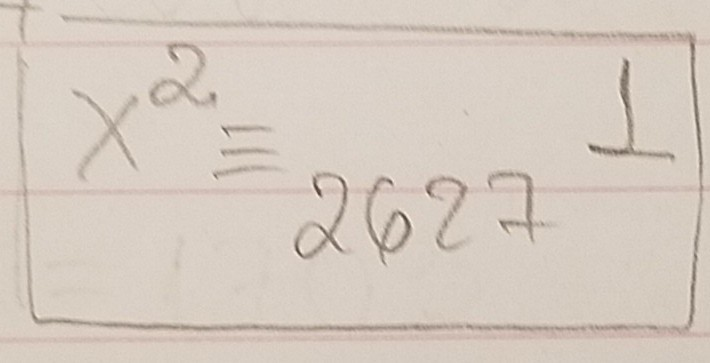 x² ≡₂₆₂₇ 1